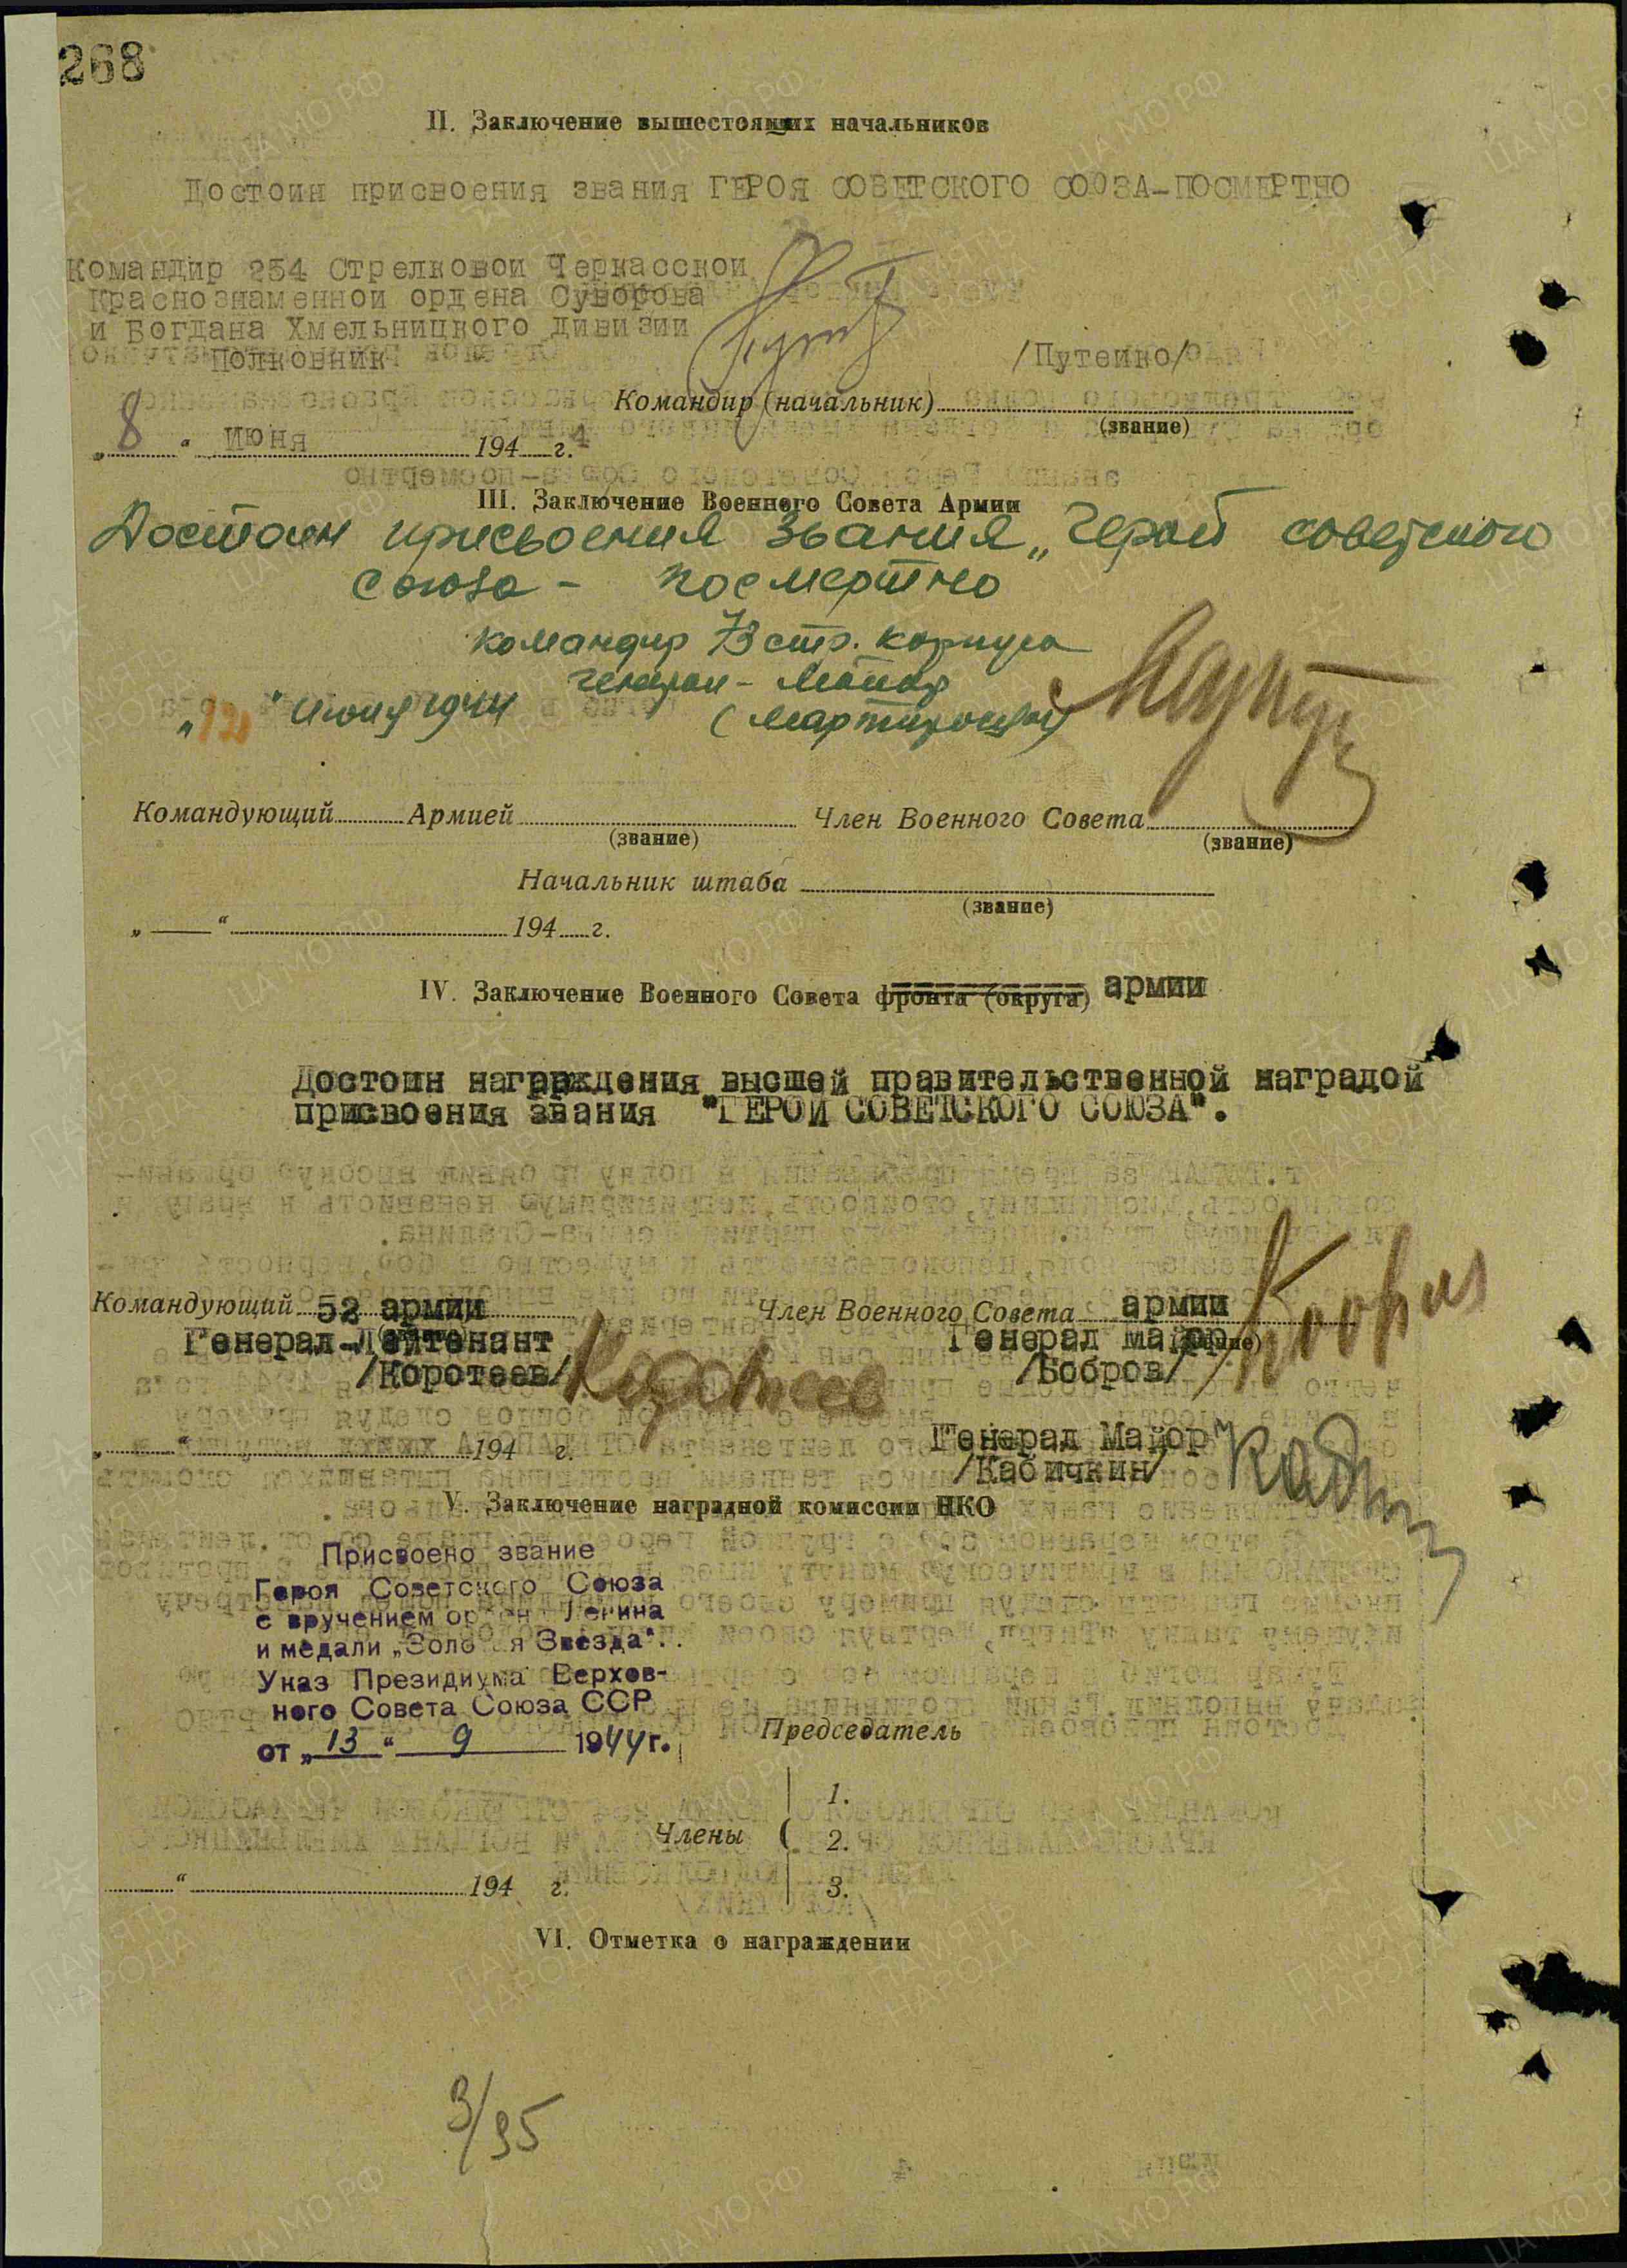 268
II. Заключение вышестоящих начальников
Достоин присвоения звания ГЕРОЯ СОВЕТСКОГО СОЮЗА-ПОСМЕРТНО
Командир 254 Стрелковой Черкасской
Краснознаменной ордена Суворова
и Богдана Хмельницкого дивизии
Полковник /Путейко/
Командир (начальник)
(звание)
„ 8 “ июня 1944 г.
III. Заключение Военного Совета Армии
Достоин присвоения звания „Герой советского
союза - посмертно
командир 73 стр. корпуса
генерал-майор
„ “ июня 1944 (Мартиросян)
Командующий Армией Член Военного Совета
(звание) (звание)
Начальник штаба
(звание)
„ “ 194 г.
IV. Заключение Военного Совета фронта (округа) армии
Достоин награждения высшей правительственной наградой
присвоения звания "ГЕРОЙ СОВЕТСКОГО СОЮЗА".
Командующий 52 армии Член Военного Совета армии
Генерал-Лейтенант Генерал майор
/Коротеев/ Коротеев /Бобров/
Генерал Майор
„ “ 194 г.
/Кабичкин/
V. Заключение наградной комиссии НКО
Присвоено звание
Героя Советского Союза
с вручением орден Ленина
и медали „Золотая Звезда“.
Указ Президиума Верхов-
ного Совета Союза ССР
от „ 13 “ 9 1944 г.
Председатель
1.
Члены 2.
“ 194 г. 3.
VI. Отметка о награждении
3/95
ПАМЯТЬ НАРОДА
ЦАМО РФ